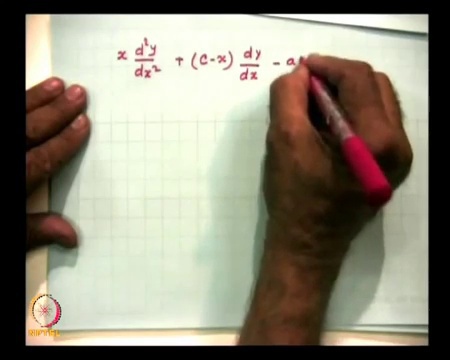 x d²y/dx² + (c-x) dy/dx - a
NPTEL